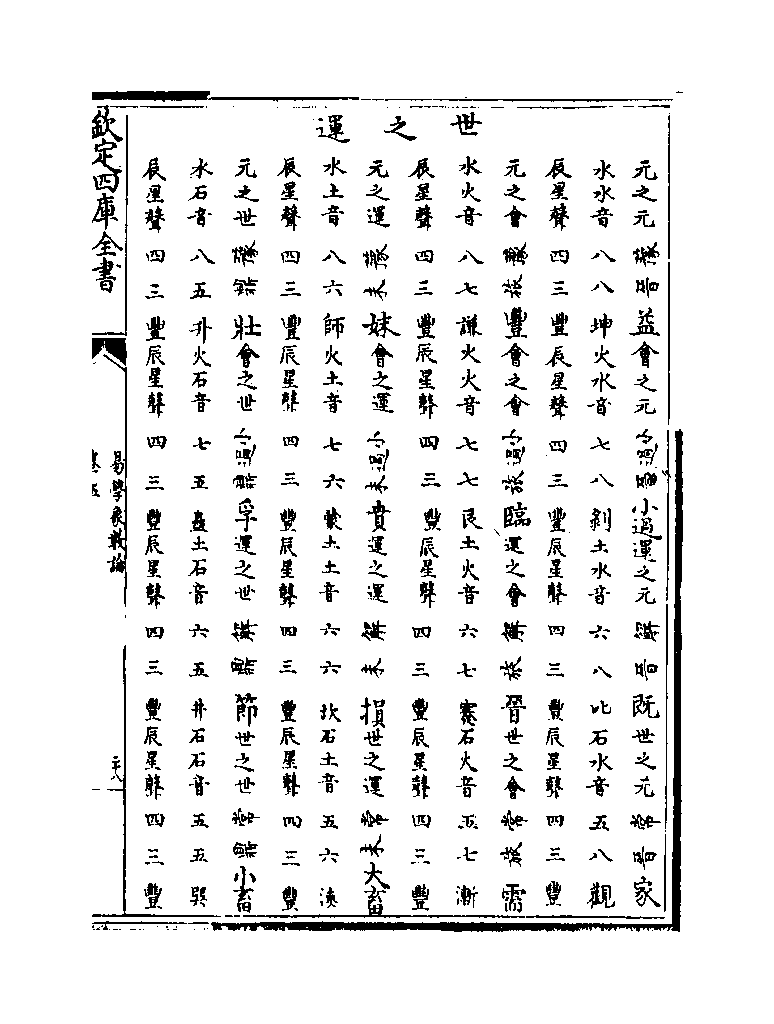 世之運
元之元豫晉益會之元小過晉小過運之元解晉既世之元常晉家
水水音八八坤火水音七八剝土水音六八比石水音五八觀
辰星聲四三豐辰星聲四三豐辰星聲四三豐辰星聲四三豐
元之會豫旅豐會之會小過旅臨運之會解旅晉世之會常旅需
水火音八七謙火火音七七艮土火音六七蹇石火音五七漸
辰星聲四三豐辰星聲四三豐辰星聲四三豐辰星聲四三豐
元之運豫未妹會之運小過未賁運之運解未損世之運常未大畜
水土音八六師火土音七六蒙土土音六六坎石土音五六渙
辰星聲四三豐辰星聲四三豐辰星聲四三豐辰星聲四三豐
元之世豫鼎壯會之世小過鼎孚運之世解鼎節世之世常鼎小畜
水石音八五升火石音七五蠱土石音六五井石石音五五巽
辰星聲四三豐辰星聲四三豐辰星聲四三豐辰星聲四三豐
欽定四庫全書
易學象數論
卷五